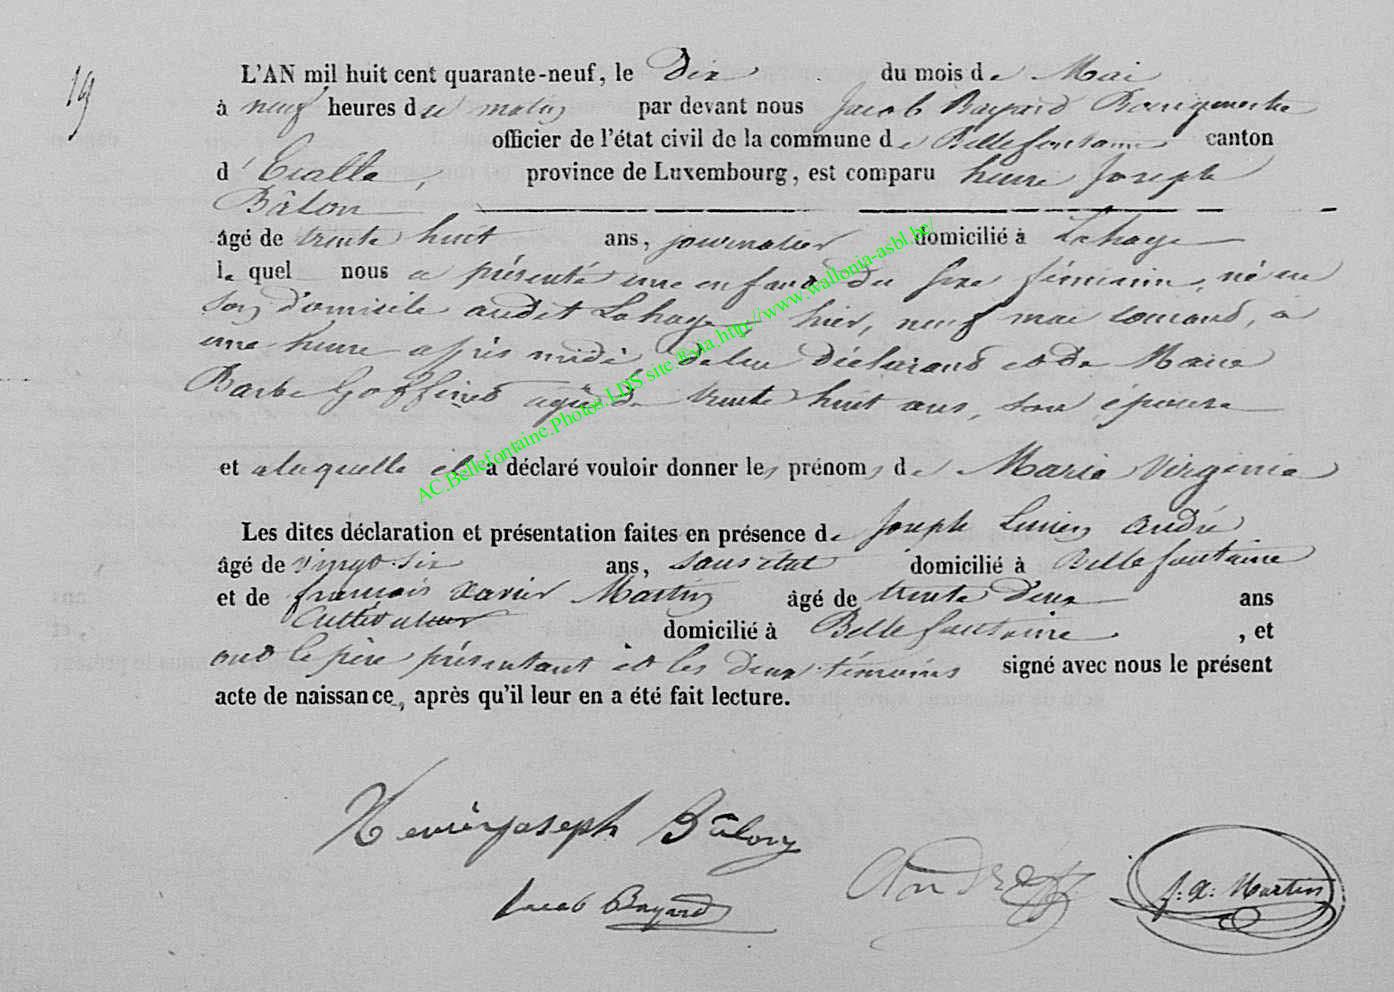 19
L'AN mil huit cent quarante-neuf, le Dix du mois de Mai
à neuf heures du matin par devant nous Jacob Bayard Bourgmestre
officier de l'état civil de la commune de Bellefontaine canton
d'Etalle, province de Luxembourg, est comparu henri Joseph
Bâlon
âgé de trente huit ans, journalier domicilié à Lahage
le quel nous a présenté une enfant du sexe féminin, né en
son domicile audit Lahage hier, neuf mai courant, à
une heure après midi de lui déclarant et de Marie
Barbe Goffinet agée de trente huit ans, son épouse
et a laquelle il a déclaré vouloir donner les prénoms de Marie Virginie
Les dites déclaration et présentation faites en présence de Joseph Lucien André
âgé de vingt-six ans, sans état domicilié à Bellefontaine
et de françois Xavier Martin âgé de trente deux ans
Cultivateur domicilié à Bellefontaine, et
ont le père présentant et les deux témoins signé avec nous le présent
acte de naissance, après qu'il leur en a été fait lecture.
Henri joseph Bâlon
Jacob Bayard
André
f: x: Martin
AC.Bellefontaine.Photos.LDS site.®via.http://www.wallonia-asbl.be/